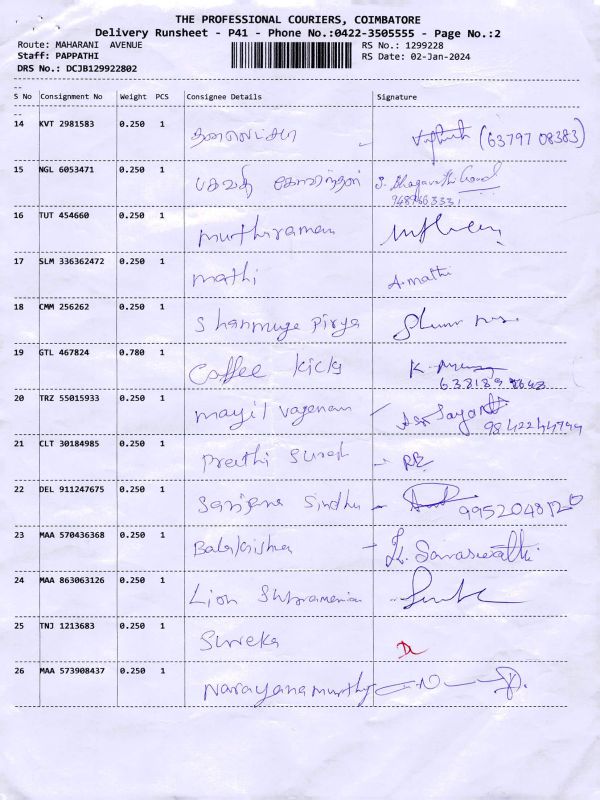 THE PROFESSIONAL COURIERS, COIMBATORE
Delivery Runsheet - P41 - Phone No.:0422-3505555 - Page No.:2
Route: MAHARANI AVENUE RS No.: 1299228
Staff: PAPPATHI RS Date: 02-Jan-2024
DRS No.: DCJB129922802
S No Consignment No Weight PCS Consignee Details Signature
14 KVT 2981583 0.250 1 (63797 08383)
15 NGL 6053471 0.250 1 பகவதி கோவிந்தன்
16 TUT 454660 0.250 1 Murthiraman
17 SLM 336362472 0.250 1 mathi A. mathi
18 CMM 256262 0.250 1 Shanmuga Pirya
19 GTL 467824 0.780 1 Coffee kicks
20 TRZ 55015933 0.250 1 mayil vaganam
21 CLT 30184985 0.250 1 Preethi Suresh
22 DEL 911247675 0.250 1 Sindhu
23 MAA 570436368 0.250 1 Balakrishna K. Saraswathi
24 MAA 863063126 0.250 1 Lion Subramania
25 TNJ 1213683 0.250 1 Surreka
26 MAA 573908437 0.250 1 Narayanamurthy